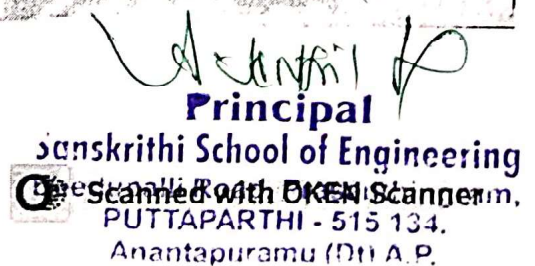 Principal
Sanskrithi School of Engineering
Scanned with OKEN Scanner
PUTTAPARTHI - 515 134.
Anantapuramu (Dt) A.P.